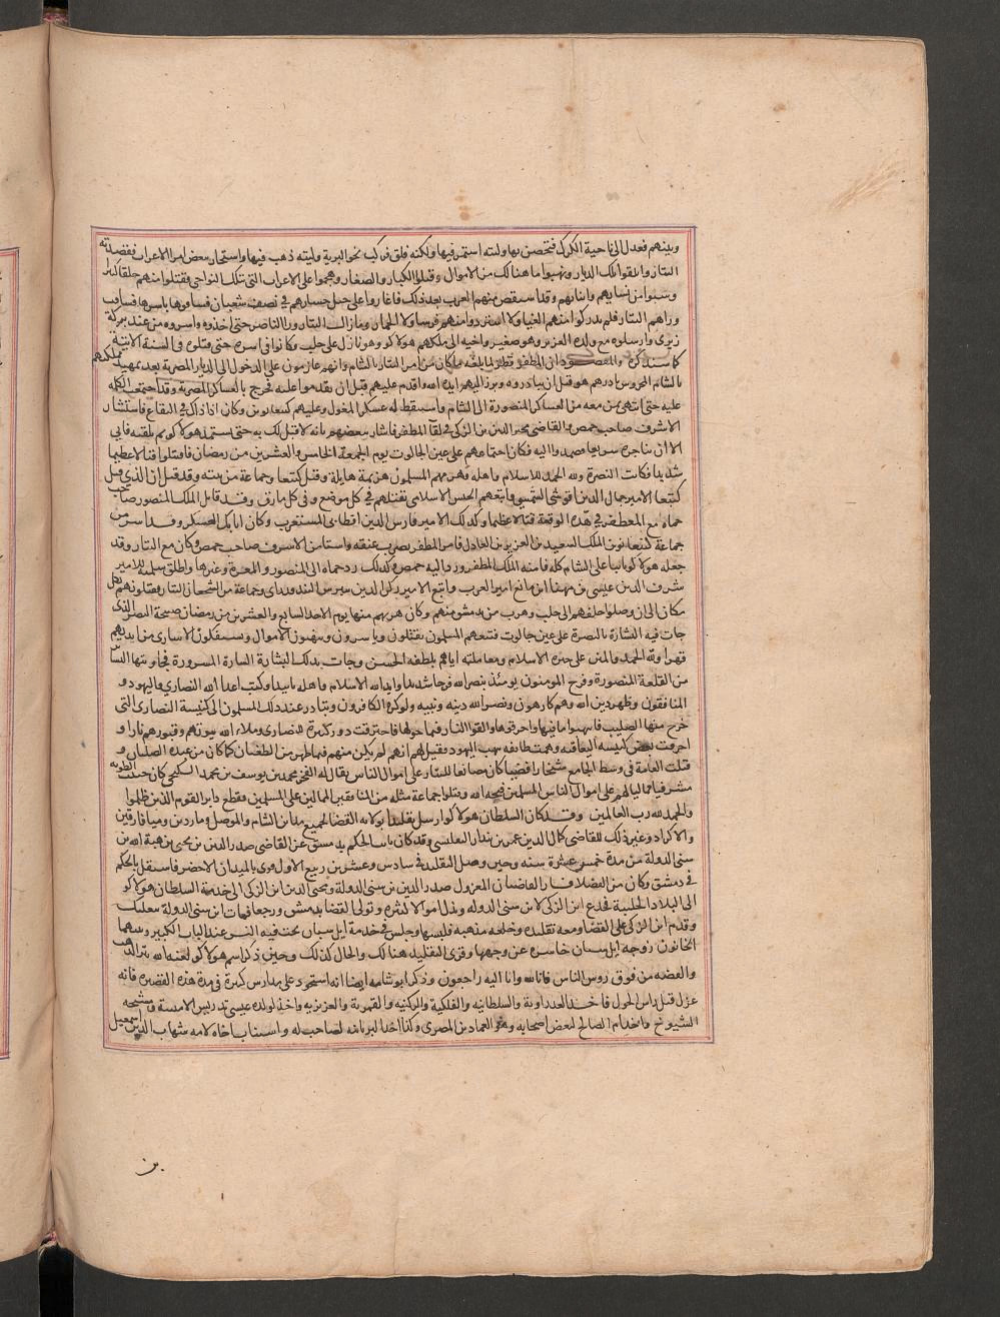 وبينهم فعدل الى ناحية الكرك فتحصن بها وليته استمر فيها ولكنه قلق فركب نحو البرية وليته ذهب فيها واستجار ببعض امراء الاعراب فقصدته
التتار واتلفوا تلك الديار ونهبوا ما هنالك من الاموال وقتلوا الكبار والصغار وهجموا على الاعراب التى بتلك النواحى فقتلوا منهم خلقا كثيرا
وسبوا من نسايهم وابنائهم وقد اقتص منهم العرب بعد ذلك فاغاروا على خيل جشارهم فى نصف شعبان فساقوها باسرها فساقت
وراهم التتار فلم يدركوا منهم الغبار ولا استردوا منهم فرسا ولا حمار وما زال التتار ورا الناصر حتى اخذوه واسروه من عند بركة
زيزى وارسلوه مع ولده العزيز وهو صغير واخيه الى ملكهم هولاكو وهو نازل على حلب وكانوا فى اسره حتى قتلوه فى السنة الاتية
كما سنذكره والمقصود ان المظفر قطز لما بلغه ما كان من امر التتار بالشام وانهم عازمون على الدخول الى الديار المصرية بعد تمهيد ملكهم
بالشام المحروس بادرهم هو قبل ان يبادروه وبرز اليهم ايده الله واقدم عليهم قبل ان يقدموا عليه فخرج بالعساكر المصرية وقد اجتمعت الكلمة
عليه حتى انتهى بمن معه من العساكر المنصورة الى الشام واستيقظ له عسكر المغول وعليهم كتبغا نوين وكان اذ ذاك فى البقاع فاستشار
الاشرف صاحب حمص والقاضى مجير الدين بن الزكى فى لقا المظفر فاشار بعضهم بانه لا قبل لك به حتى تستمد هولاكو ثم تلقنه فابى
الا ان يناجزه سريعا فصمد واليه فكان اجتماعهم على عين الجالوت يوم الجمعة الخامس والعشرين من رمضان فاقتتلوا قتالا عظيما
شديدا فكانت النصرة ولله الحمد للاسلام واهله فهزمهم المسلمون هزيمة هايلة وقتل كتبغا وجماعة من بيته وقد قيل ان الذى قتل
كتبغا الامير جمال الدين اقوش الشمسى واتبعهم الجيش الاسلامى يقتلهم فى كل موضع وفى كل مازق وقد قاتل الملك المنصور صاحب
حماة مع المظفر فى هذه الوقعة قتالا عظيما وكذلك الامير فارس الدين اقطاى المستعرب وكان اتابك العسكر وقد اسر من
جماعة كتبغا نوين الملك السعيد بن العزيز بن العادل فامر المظفر بضرب عنقه واستامن الاشرف صاحب حمص وكان مع التتار وقد
جعله هولاكو نائبا على الشام كله فامنه الملك المظفر ورد اليه حمص وكذلك رد حماه الى المنصور والمعرة وغيرها واطلق سلمية للامير
شرف الدين عيسى بن مهنا ابن مانع امير العرب واتبع الامير ركن الدين بيبرس البندقدارى وجماعة من الشجعان التتار يقتلونهم بكل
مكان الى ان وصلوا خلفهم الى حلب وهرب من بدمشق منهم وكان هربهم منها يوم الاحد السابع والعشرين من رمضان صبيحة النصر الذى
جات فيه البشارة بالنصرة على عين جالوت فتبعهم المسلمون يقتلون وياسرون وينهبون الاموال ويستفكون الاسارى من ايديهم
قهرا ولله الحمد والمن على جبره الاسلام ومعاملته اياهم بلطفه الحسن وجات بذلك البشارة السارة المسرورة فجاوبتها البشا
من القلعة المنصورة وفرح المومنون يومئذ بنصر الله فرحا شديدا وايد الله الاسلام واهله تاييدا وكبت اعدا الله النصارى واليهود و
المنافقون وظهر دين الله وهم كارهون ونصر الله دينه ونبيه ولو كره الكافرون وتبادر عند ذلك المسلمون الى كنيسة النصارى التى
خرج منها الصليب فانتهبوا ما فيها واحرقوها والقوا النار فيما حولها فاحترقت دور كثيرة للنصارى وملاء الله بيوتهم وقبورهم نارا و
احرقت بعض كنيسه اليعاقبه وهمت طايفه بنهب اليهود فقيل لهم انهم لم يكن منهم فيما ظهر من الطغيان كما كان من عبدة الصلبان و
قتلت العامة فى وسط الجامع شيخا رافضيا كان مصانعا للتتار على اموال الناس يقال له الفخر محمد بن يوسف بن محمد الكنجى كان خبيث الطويه
مشرقيا مماليا لهم على اموال الناس المسلمين قبحه الله وقتلوا جماعة مثله من المنافقين الممالين على المسلمين فقطع دابر القوم الذين ظلموا
والحمد لله رب العالمين وقد كان السلطان هولاكو ارسل تقليدا بولايه القضا لجميع مداين الشام والموصل وماردين وميافارقين
والاكراد وغير ذلك للقاضى كمال الدين عمر بن بندار التفليسى وقد كان نايب الحكم بدمشق عن القاضى صدر الدين بن يحيى بن هبة الله بن
سنى الدولة من مدة خمس عشرة سنه وحين وصل التقليد فى سادس وعشرين ربيع الاول قرى بالميدان الاخضر فاستقل بالحكم
فى دمشق وكان من الفضلا فسار القاضيان المعزول صدر الدين بن سنى الدولة ومحيى الدين ابن الزكى الى خدمة السلطان هولاكو
الى البلاد الحلبية فخدع ابن الزكى لابن سنى الدوله وبذل اموالا كثيرة وتولى القضا بدمشق ورجعا فمات ابن سنى الدولة ببعلبك
وقدم ابن الزكى على القضا ومعه تقليده وخلعه مذهبه فلبسها وجلس فى خدمة ايل سبان تحت قبه النسر عند الباب الكبير وبينهما
الخاتون زوجه ايل سبان حاسره عن وجهها وقرى التقليد هنالك والحال كذلك وحين ذكر اسم هولاكو لعنه الله نثر الذهب
والفضه من فوق روس الناس فانا لله وانا اليه راجعون وذكر ابو شامه ايضا انه استحوذ على مدارس كثيرة فى مدة هذه القصيره فانه
عزل قبل راس الحول فاخذ العذراوية والسلطانيه والفلكية والركنيه والقيمرية والعزيزيه واخذ لولده عيسى تدريس الامينية ومشيخه
الشيوخ واخذ ام الصالح لبعض اصحابه وهو العماد بن المصرى وكذا اخذ البرانيه لصاحب له واستناب اخاه لامه شهاب الدين اسمعيل
بن